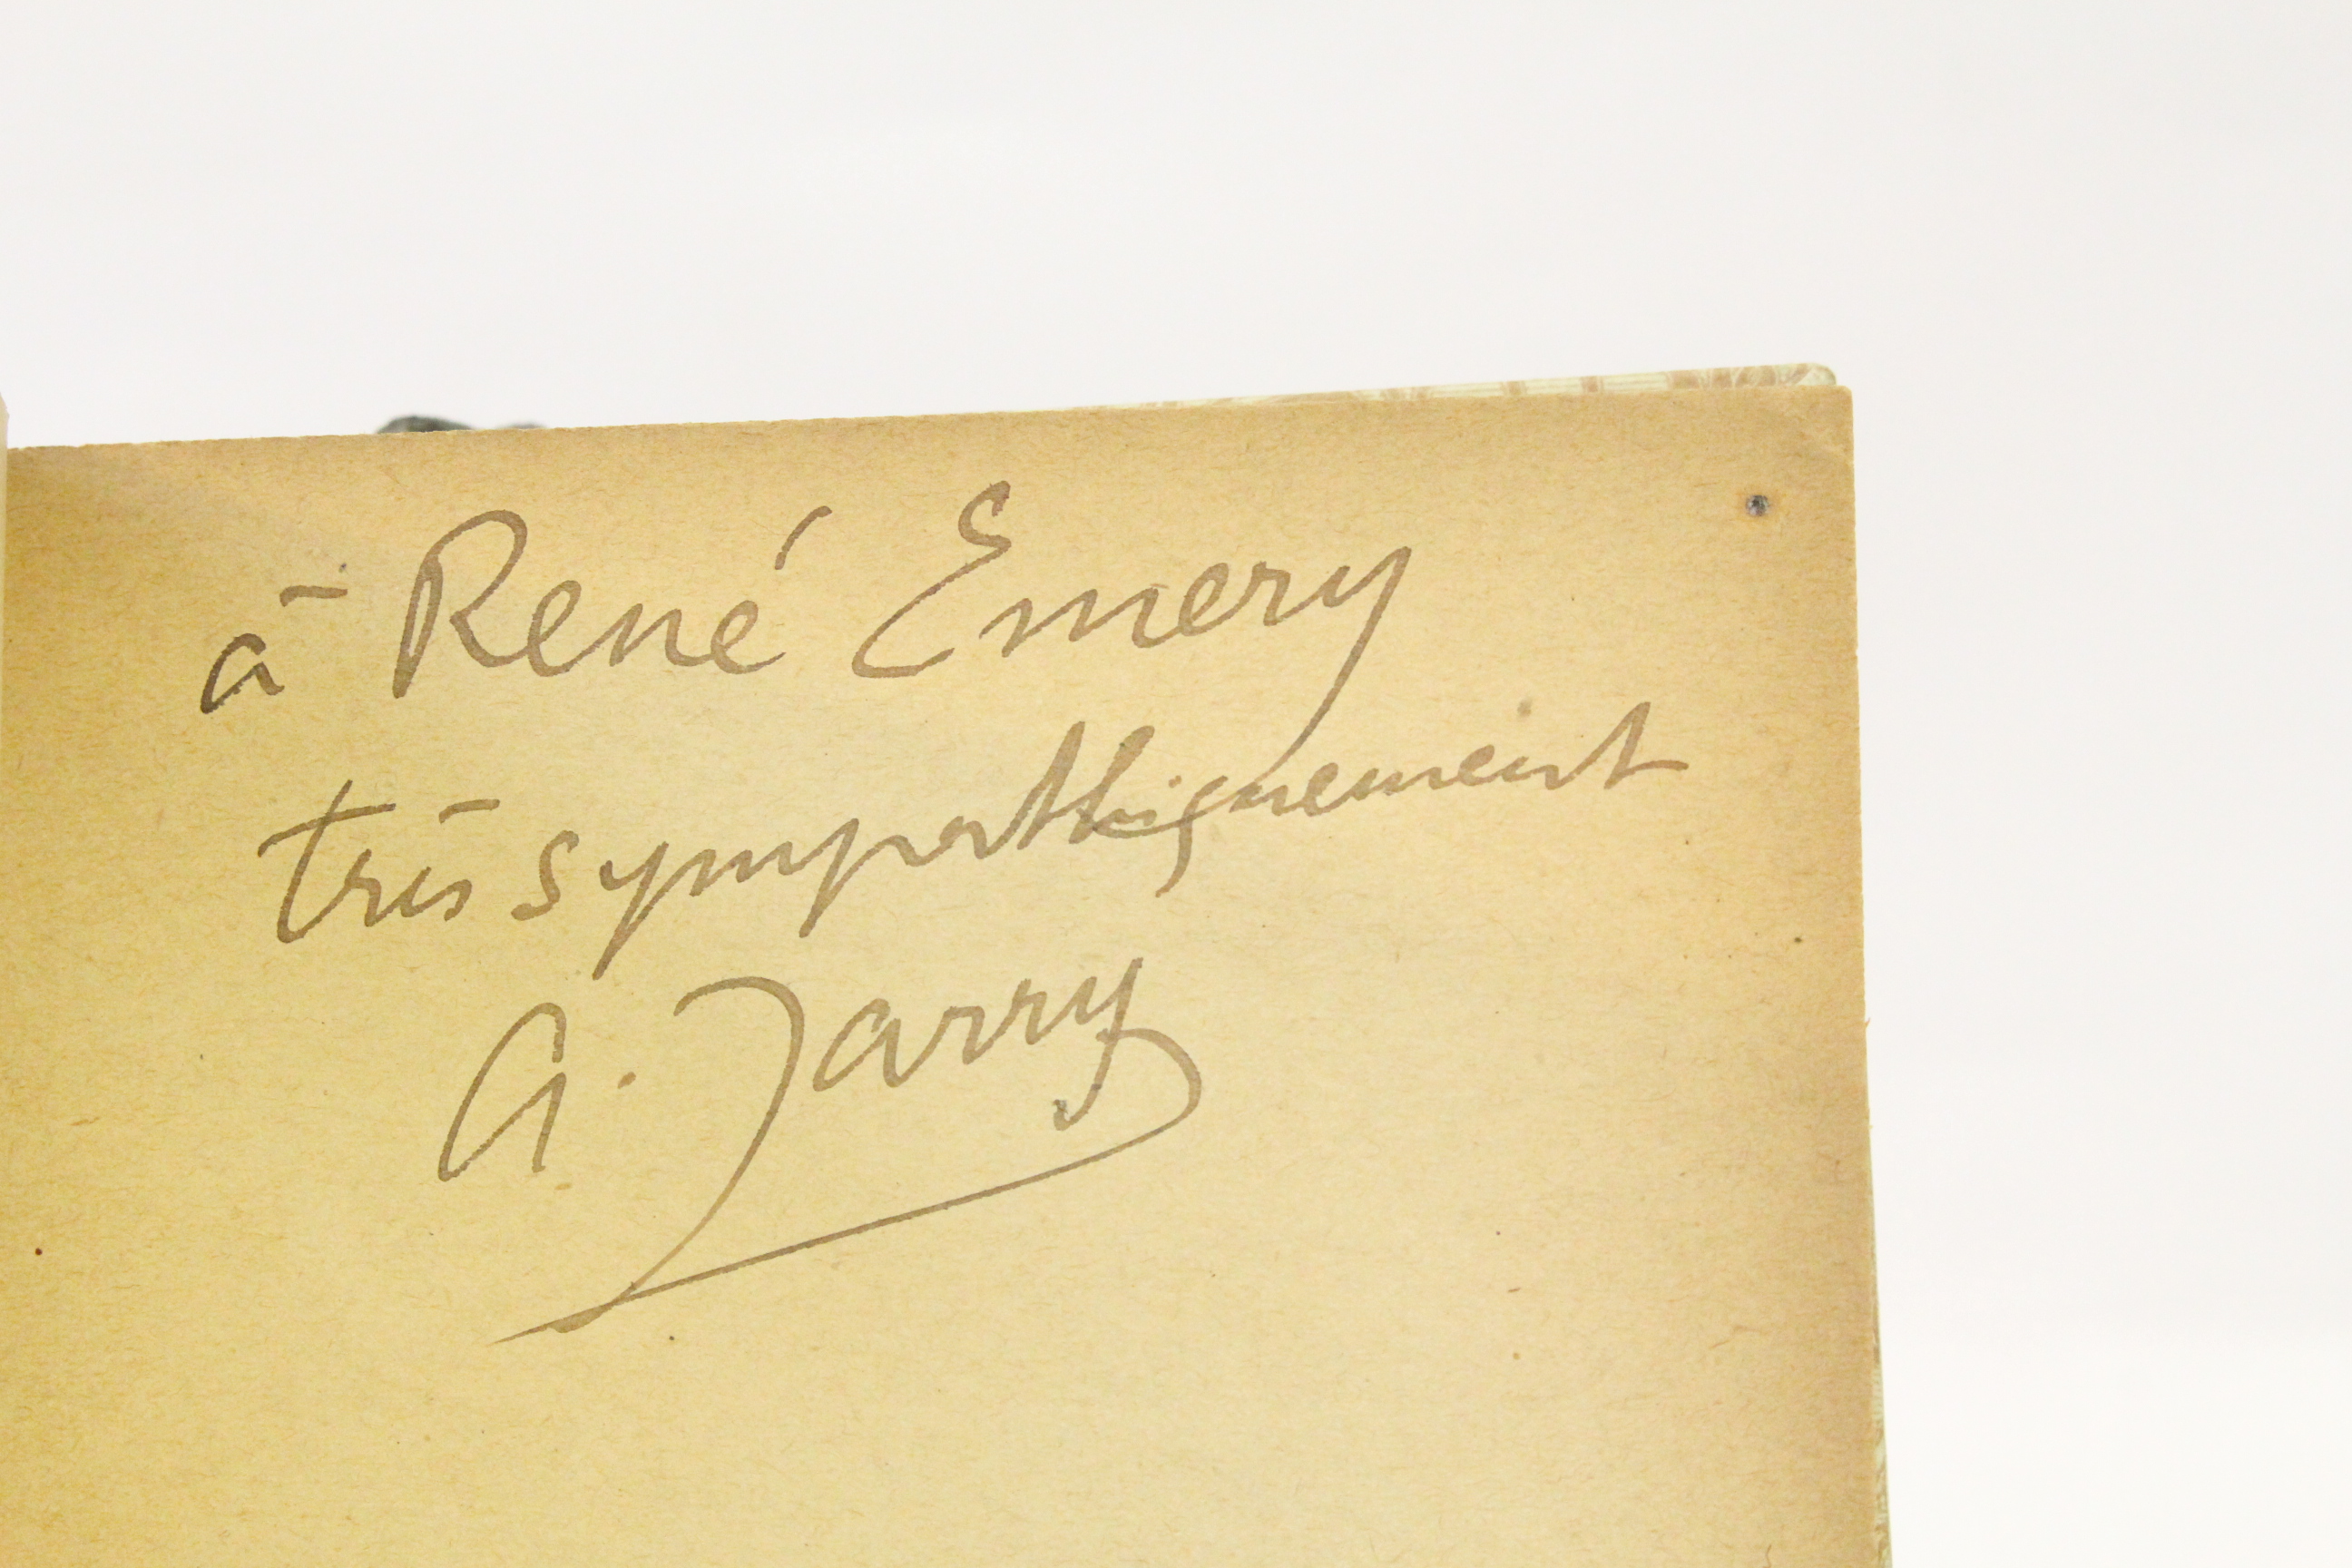 à René Emery
très sympathiquement
A. Jarry